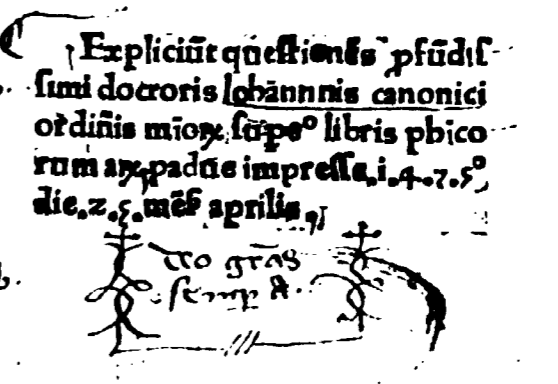 Expliciūt questiones pfūdis
simi doctoris Iohānnnis canonici
ordīnis mīoꝝ supeꝰ libris phico
rum aꝝ padue impresse.i.4.7.5°
die.25.mēs aprilis.
deo grās
semp A.